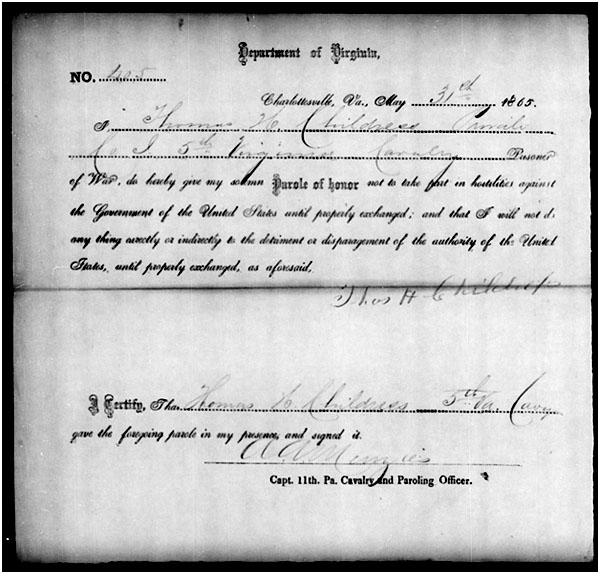 Department of Virginia,
NO. 405
Charlottesville, Va., May 31st 1865.
I, Thomas H Childress Private
Co I 5th Virginia Cavalry Prisoner
of War, do hereby give my solemn Parole of honor not to take part in hostilities against
the Government of the United States until properly exchanged; and that I will not do
any thing directly or indirectly to the detriment or disparagement of the authority of the United
States, until properly exchanged, as aforesaid,
Thos H Childress
I Certify, Tha. Thomas H Childress 5th Va. Cavy
gave the foregoing parole in my presence, and signed it.
Menzies
Capt. 11th. Pa. Cavalry and Paroling Officer.